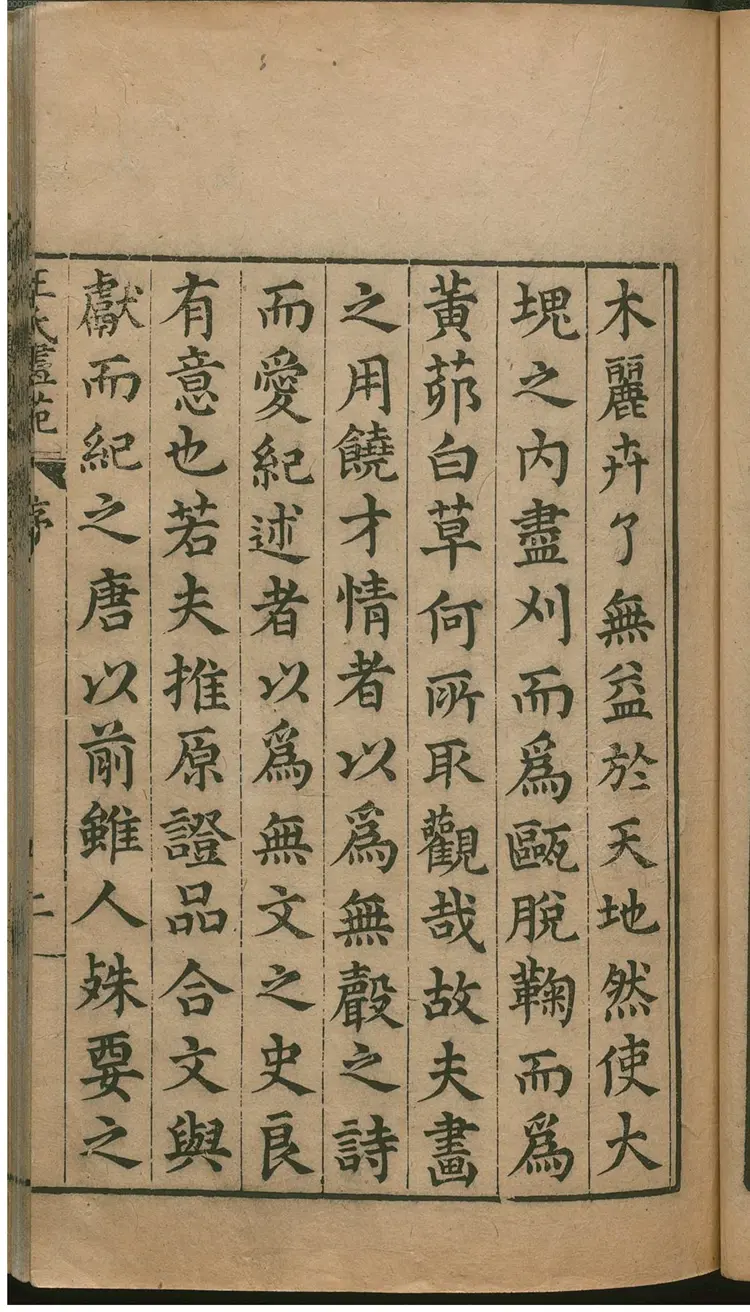 木麗卉了無益於天地然使大
塊之内盡刈而爲甌脫鞠而爲
黄茆白草何所取觀哉故夫畫
之用饒才情者以爲無聲之詩
而愛紀述者以爲無文之史良
有意也若夫推原證品合文與
獻而紀之唐以前雖人殊要之
王氏畫苑 序 二